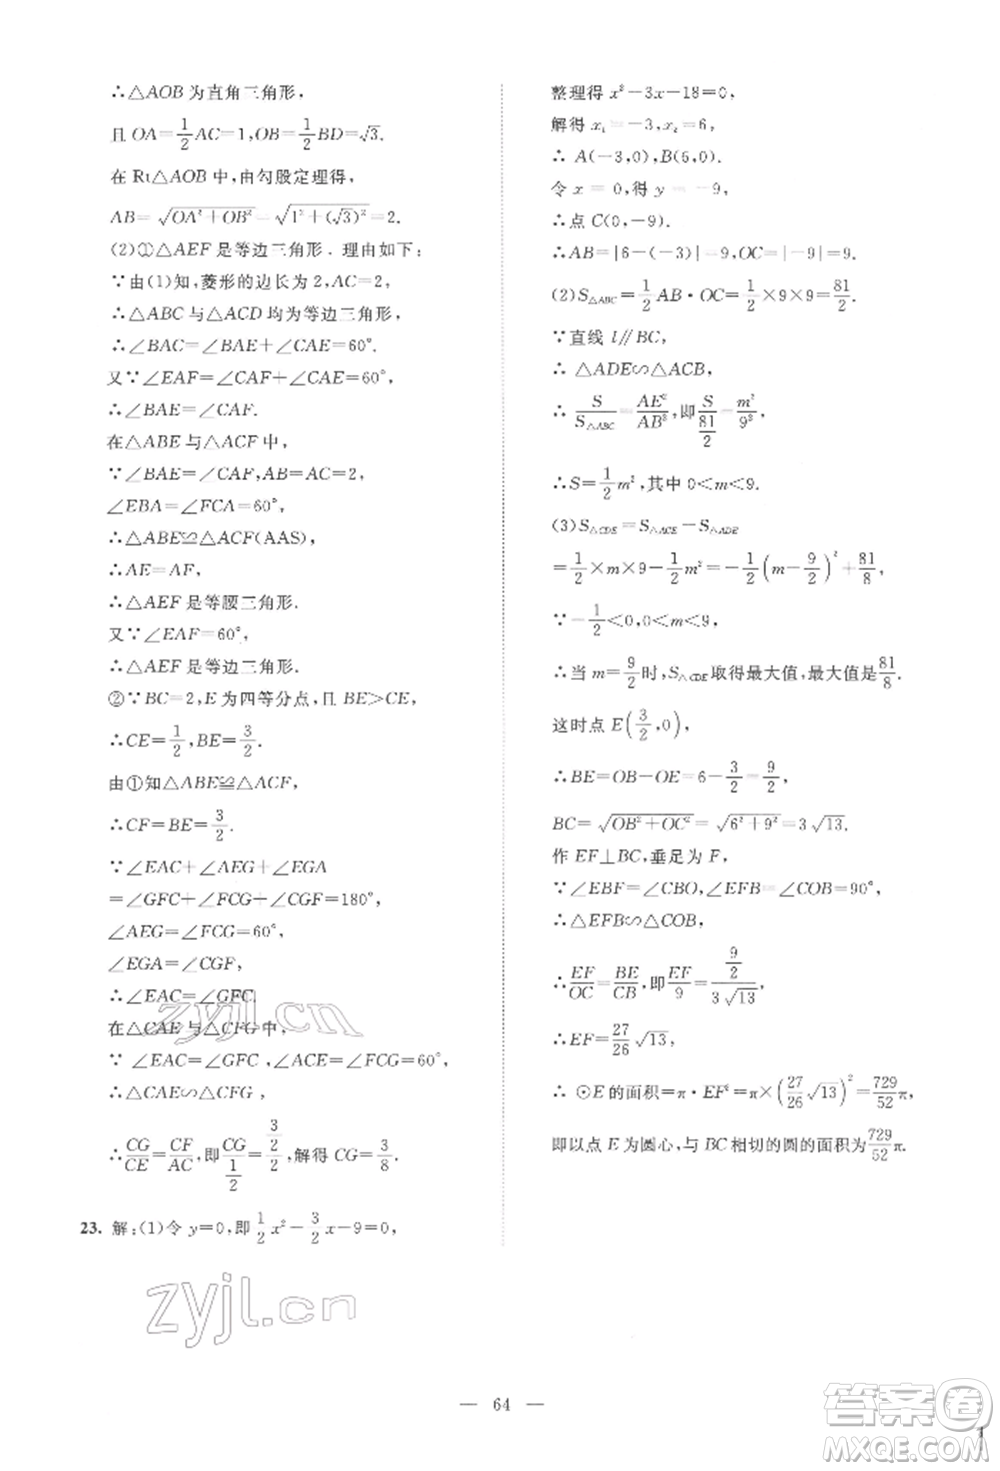 ∴△AOB 为直角三角形,
且 OA=1/2AC=1,OB=1/2BD=√3.
在 Rt△AOB 中,由勾股定理得,
AB=√(OA²+OB²)=√(1²+(√3)²)=2.
(2)①△AEF 是等边三角形. 理由如下:
∵由(1)知,菱形的边长为 2,AC=2,
∴△ABC 与△ACD 均为等边三角形,
∴∠BAC=∠BAE+∠CAE=60°.
又∵∠EAF=∠CAF+∠CAE=60°,
∴∠BAE=∠CAF.
在△ABE 与△ACF 中,
∵∠BAE=∠CAF,AB=AC=2,
∠EBA=∠FCA=60°,
∴△ABE≌△ACF(AAS),
∴AE=AF,
∴△AEF 是等腰三角形.
又∵∠EAF=60°,
∴△AEF 是等边三角形.
②∵BC=2,E 为四等分点,且 BE>CE,
∴CE=1/2,BE=3/2.
由①知△ABE≌△ACF,
∴CF=BE=3/2.
∵∠EAC+∠AEG+∠EGA
=∠GFC+∠FCG+∠CGF=180°,
∠AEG=∠FCG=60°,
∠EGA=∠CGF,
∴∠EAC=∠GFC,
在△CAE 与△CFG 中,
∵∠EAC=∠GFC,∠ACE=∠FCG=60°,
∴△CAE∽△CFG,
∴CG/CE=CF/AC,即CG/(1/2)=(3/2)/2,解得 CG=3/8.
23. 解:(1)令 y=0,即1/2x²-3/2x-9=0,
整理得 x²-3x-18=0,
解得 x₁=-3,x₂=6,
∴ A(-3,0),B(6,0).
令 x=0,得 y=-9,
∴点 C(0,-9).
∴AB=|6-(-3)|=9,OC=|-9|=9.
(2)S△ABC=1/2AB·OC=1/2×9×9=81/2.
∵直线 l∥BC,
∴ △ADE∽△ACB,
∴ S/S△ABC=AE²/AB²,即S/(81/2)=m²/9²,
∴S=1/2m²,其中 0<m<9.
(3)S△CDE=S△ACE-S△ADE
=1/2×m×9-1/2m²=-1/2(m-9/2)²+81/8,
∵-1/2<0,0<m<9,
∴当 m=9/2时,S△CDE取得最大值,最大值是81/8.
这时点 E(3/2,0),
∴BE=OB-OE=6-3/2=9/2,
BC=√(OB²+OC²)=√(6²+9²)=3√13.
作 EF⊥BC,垂足为 F,
∵∠EBF=∠CBO,∠EFB=∠COB=90°,
∴△EFB∽△COB,
∴EF/OC=BE/CB,即EF/9=(9/2)/(3√13),
∴EF=27/26√13,
∴ ⊙E 的面积=π·EF²=π×(27/26√13)²=729/52π,
即以点 E 为圆心,与 BC 相切的圆的面积为729/52π.
zyjl.cn
zyjl.cn
— 64 —
答案圈
MXQE.COM